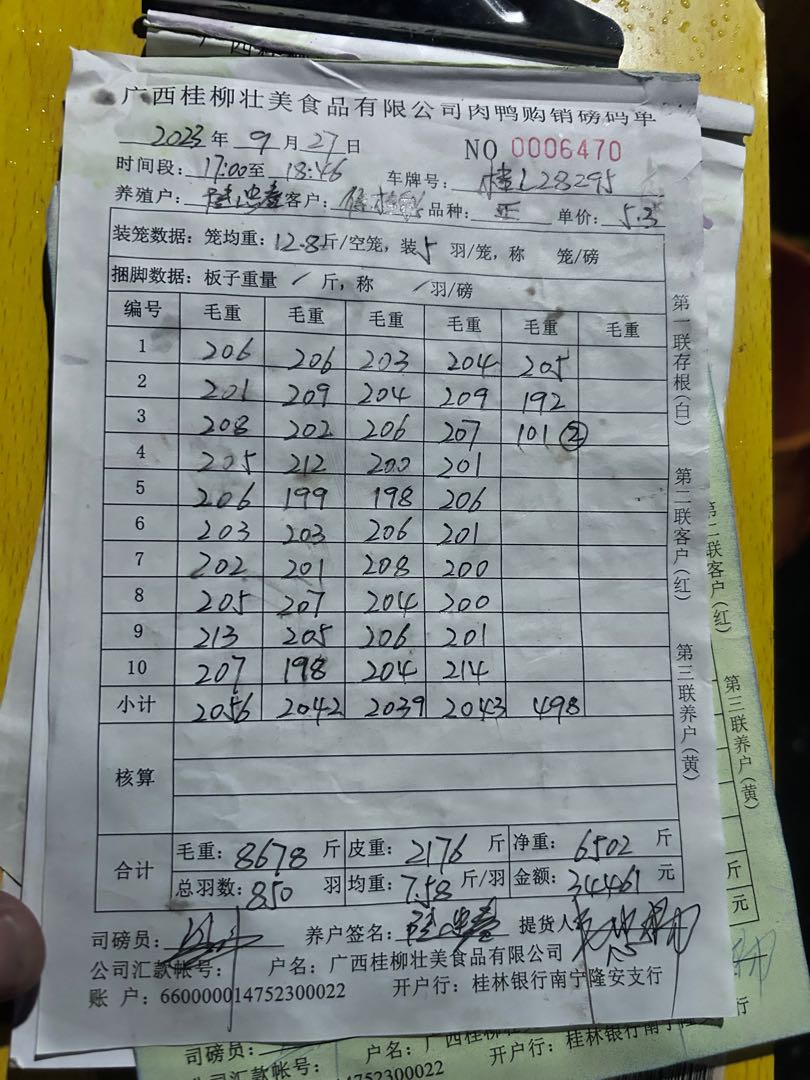 广西桂柳壮美食品有限公司肉鸭购销磅码单
2023年 9 月 27 日 NO 0006470
时间段：17:00至 18:46 车牌号：桂L28295
养殖户： 客户： 品种： 单价：5.3
装笼数据：笼均重：12.8斤/空笼，装5 羽/笼，称 笼/磅
捆脚数据：板子重量 / 斤，称 / 羽/磅
编号 毛重 毛重 毛重 毛重 毛重 毛重
1 206 206 203 204 205
2 201 209 204 209 192
3 208 202 206 207 101 ②
4 205 212 200 201
5 206 199 198 206
6 203 203 206 201
7 202 201 208 200
8 205 207 204 200
9 213 205 206 201
10 207 198 204 214
小计 2056 2042 2039 2043 498
核算
合计 毛重：8678 斤 皮重：2176 斤 净重：6502 斤
总羽数：850 羽 均重：7.58 斤/羽 金额：34461 元
司磅员： 养户签名： 提货人
公司汇款帐号： 户名：广西桂柳壮美食品有限公司
账 户：660000014752300022 开户行：桂林银行南宁隆安支行
第一联存根(白)
第二联客户(红)
第三联养户(黄)
第二联客户(红)
第三联养户(黄)
斤
元
司磅员： 户名：广西桂柳
公司汇款帐号： 开户行：桂林银行南宁隆安
14752300022